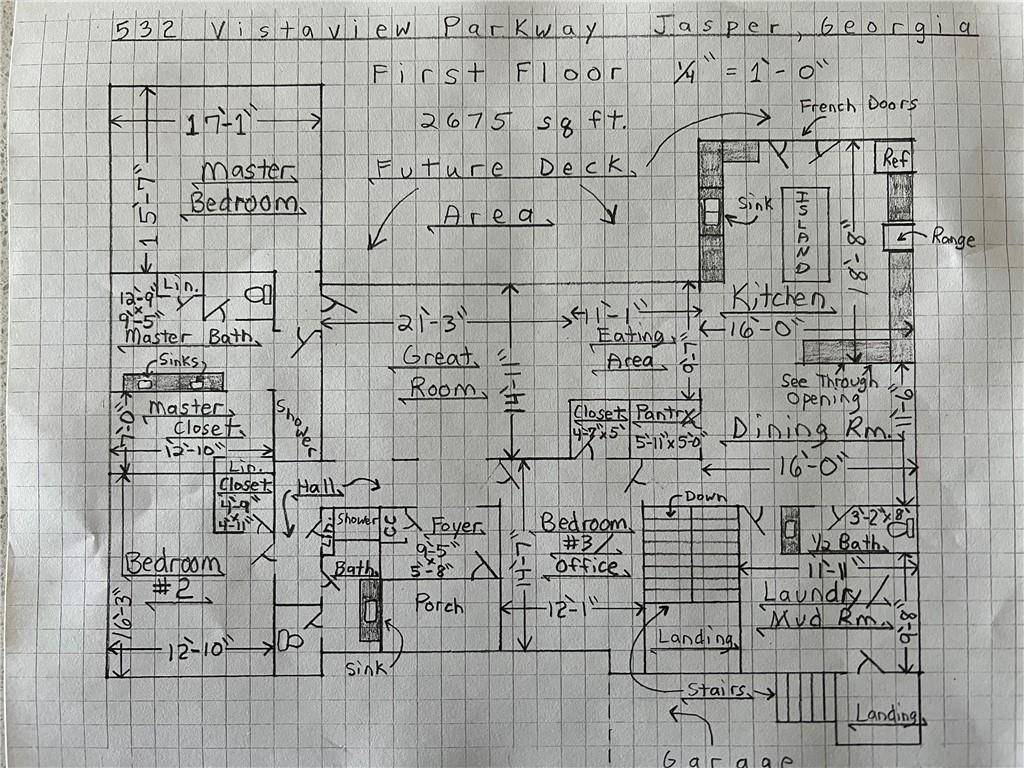 532 Vistaview Parkway Jasper, Georgia
First Floor 1/4" = 1'-0"
2675 sq ft.
Future Deck
Area
French Doors
17'-1"
15'-7"
Master
Bedroom
Ref
Sink
ISLAND
18'-8"
Range
Kitchen
16'-0"
Lin.
12'-9"
x
9'-5"
Master Bath
Sinks
21'-3"
Great
Room
14'-11"
11'-1"
Eating
Area
9'-7"
See Through
Opening
Master
Closet
7'-0"
12'-10"
Shower
Closet
4'-7" x 5'
Pantry
5'-11" x 5'-0"
Dining Rm.
16'-0"
Lin.
Closet
4'-9"
x
4'-11"
Hall
Shower
Lin
Foyer
9'-5"
x
5'-8"
Bedroom
#3/
Office
12'-1"
Down
3'-2" x 8'
1/2 Bath
11'-11"
Bedroom
#2
16'-3"
12'-10"
Bath
Porch
Sink
Laundry/
Mud Rm.
Landing
Stairs
Landing
Garage